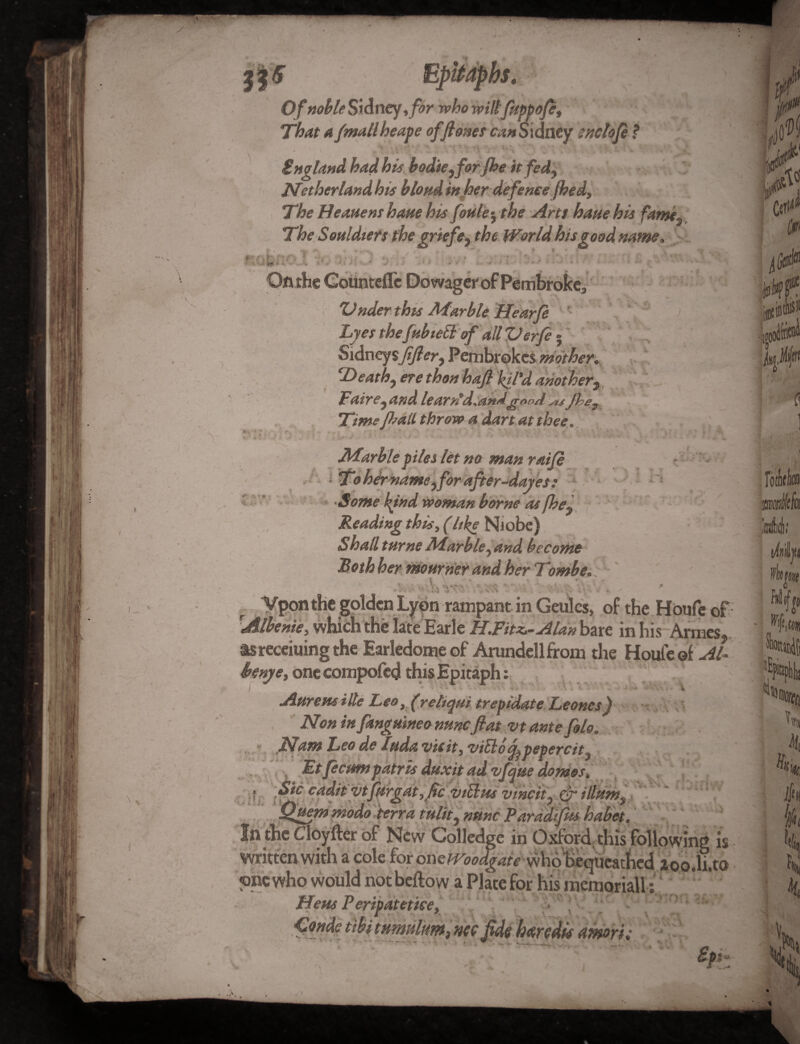 336 Epitaphs.
Of noble Sidney, for who will ſuppoſe,
That a ſmall heape of ſtones can Sidney encloſe?
England had his bodie, for ſhe it fed,
Netherland his bloud in her defence ſhed,
The Heauens haue his ſoule; the Arts haue his fame,
The Souldiers the griefe, the World his good name.
On the Counteſſe Dowager of Pembroke,
Vnder this Marble Hearſe
Lyes the ſubiect of all Verſe;
Sidneys ſiſter, Pembrokes mother.
Death, ere thou haſt kil'd another,
Faire, and learn'd, and good as ſhe,
Time ſhall throw a dart at thee.
Marble piles let no man raiſe
To her name, for after-dayes:
Some kind woman borne as ſhe,
Reading this, (like Niobe)
Shall turne Marble, and become
Both her mourner and her Tombe.
Vpon the golden Lyon rampant in Geules, of the Houſe of
Albenie, which the late Earle H.Fitz-Alan bare in his Armes,
as receiuing the Earledome of Arundell from the Houſe of Al-
benye, one compoſed this Epitaph:
Aureus ille Leo, (reliqui trepidate Leones)
Non in ſanguineo nunc ſtat vt ante ſolo.
Nam Leo de Iuda vicit, victóq; pepercit,
Et ſecum patris duxit ad vſque domos.
Sic cadit vt ſurgat, ſic victus vincit, & illum,
Quem modo terra tulit, nunc Paradiſus habet.
In the Cloyſter of New Colledge in Oxford this following is
written with a cole for one Woodgate who bequeathed 200.li.to
one who would not beſtow a Plate for his memoriall:
Heus Peripatetice,
Conde tibi tumulum, nec fide hæredis amori:
Epi-